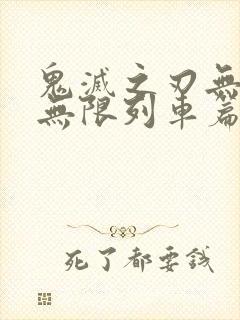 鬼滅之刃無
無限列車篇
死了都要錢